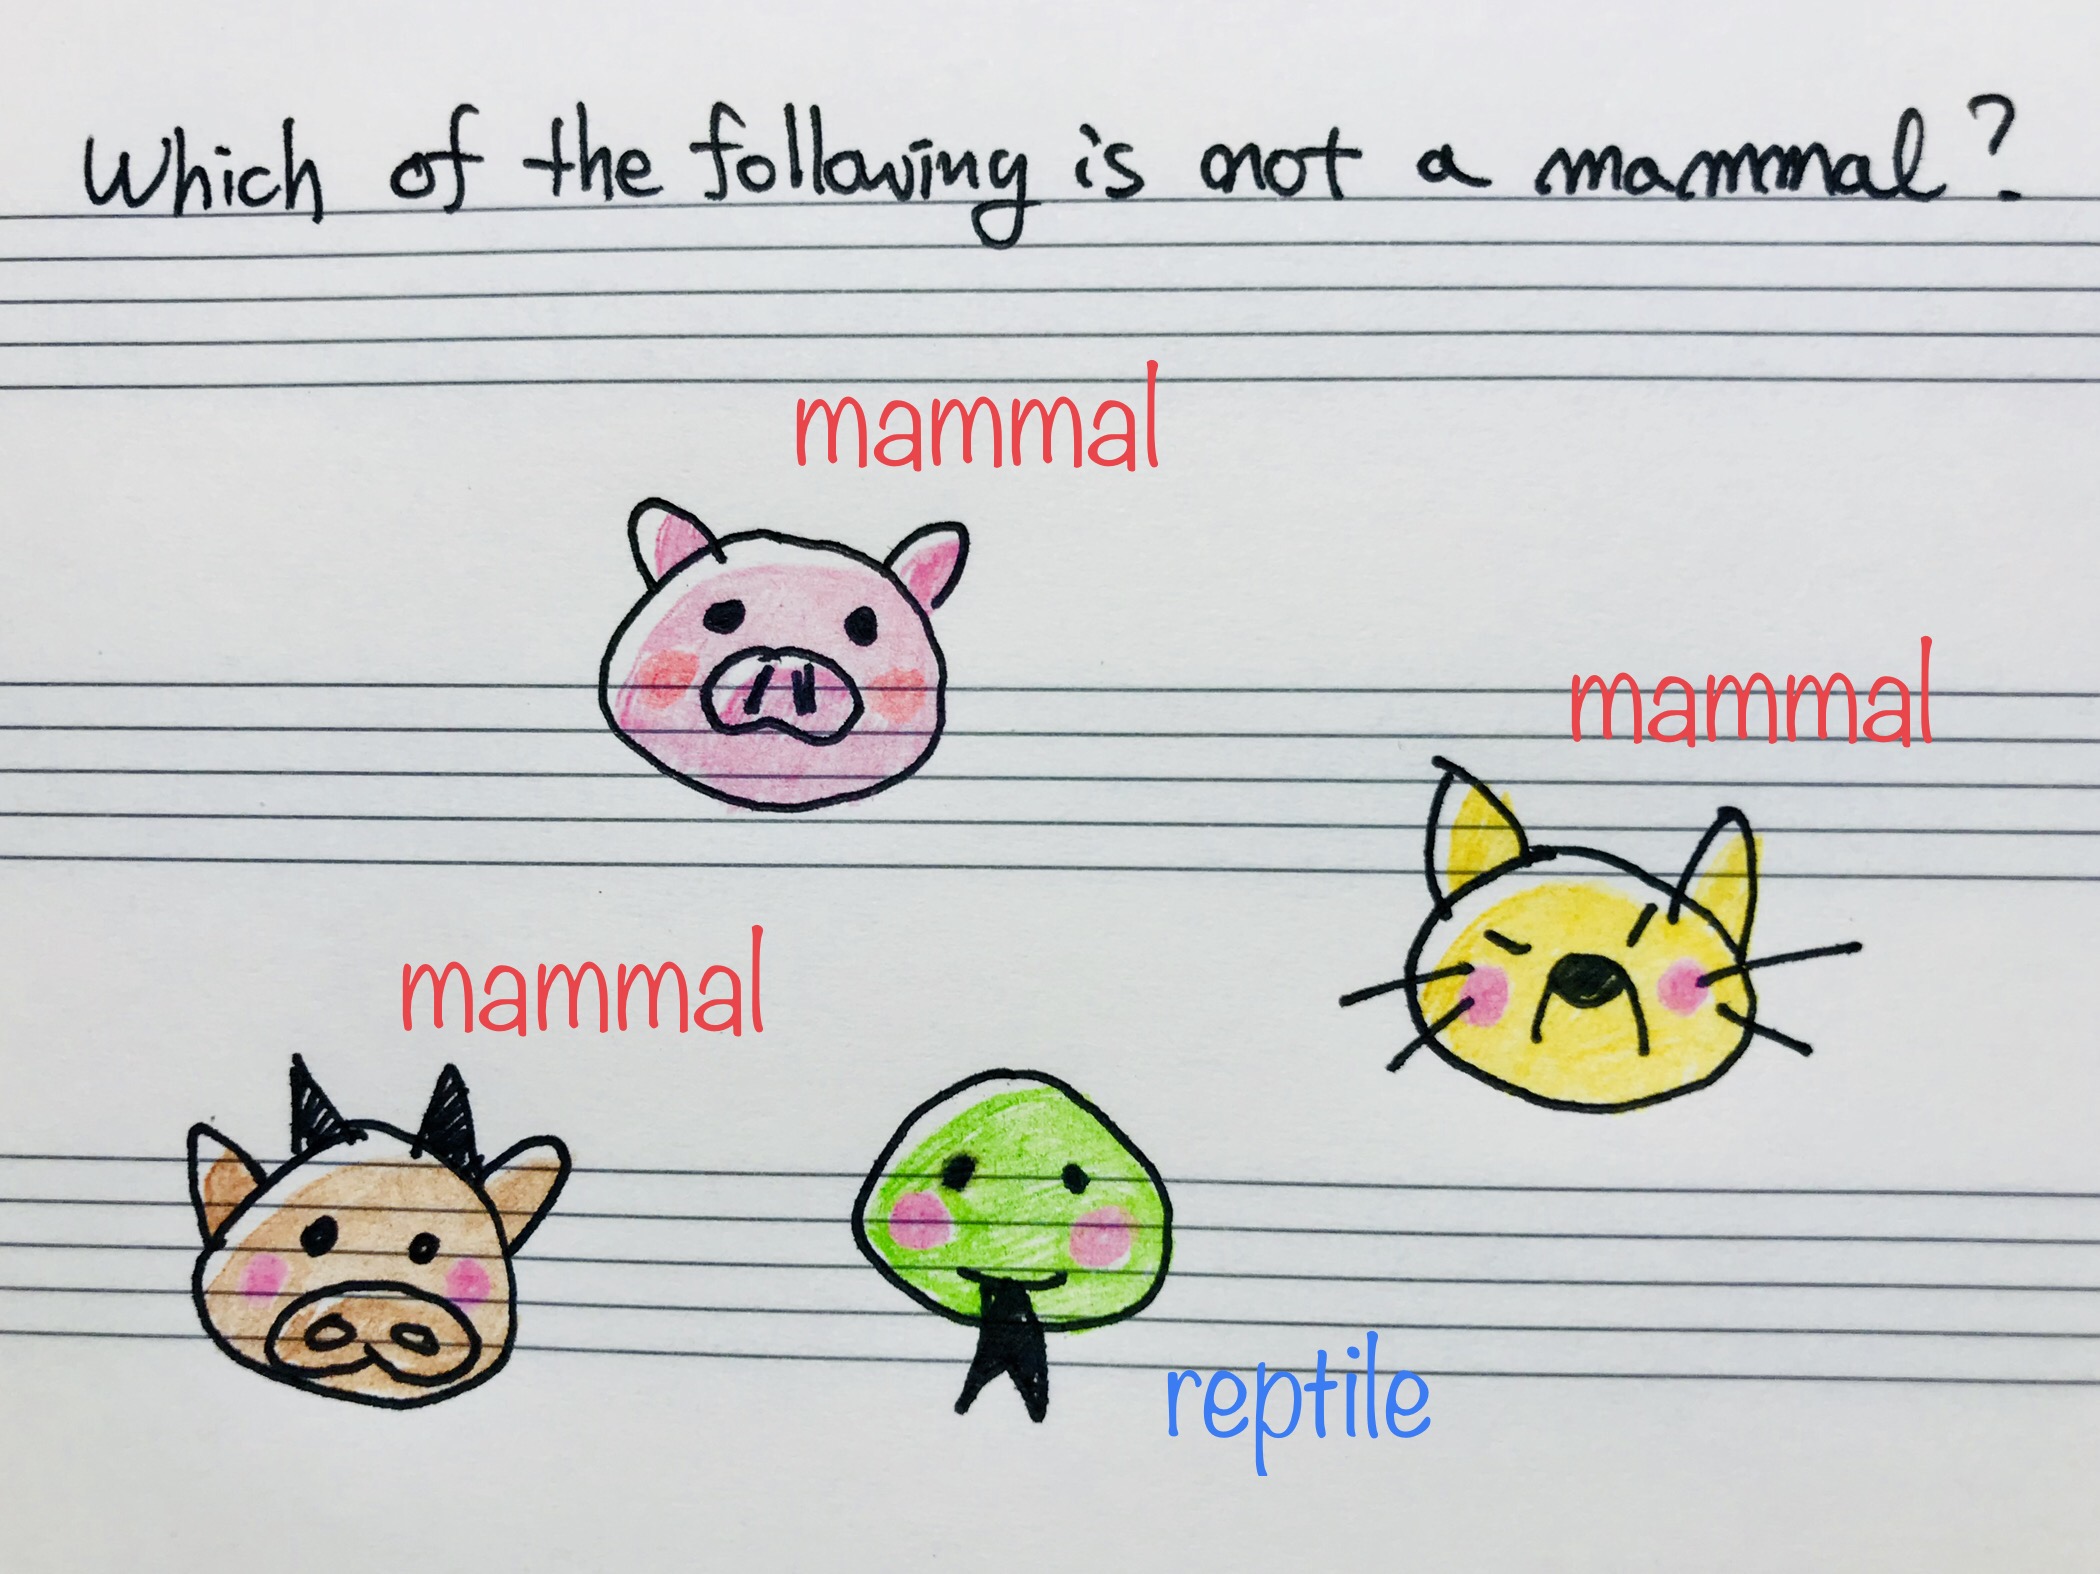 Which of the following is not a mammal?
mammal
mammal
mammal
reptile